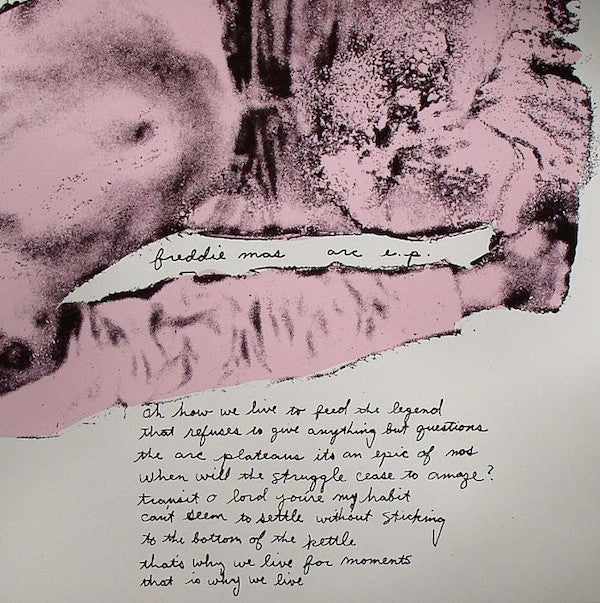 freddie mas arc e.p.
Oh how we live to feed the legend
that refuses to give anything but questions
the arc plateaus its an epic of nos
When will the struggle cease to amaze?
transit o lord you're my habit
can't seem to settle without sticking
to the bottom of the kettle
that's why we live for moments
that is why we live